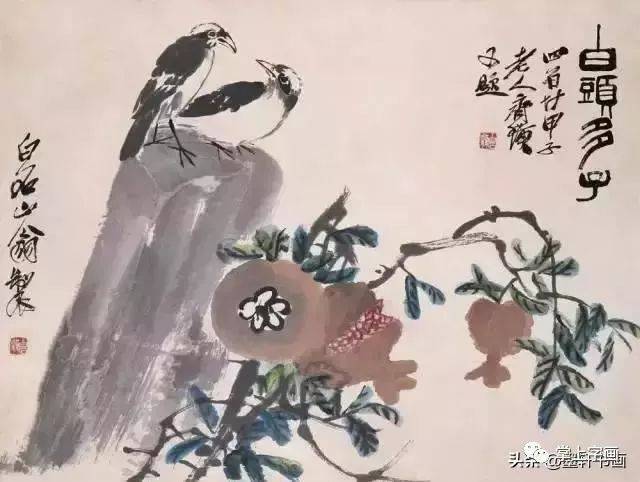 白頭多子
四百廿甲子
老人齊璜
又題
白石山翁製
掌上字画